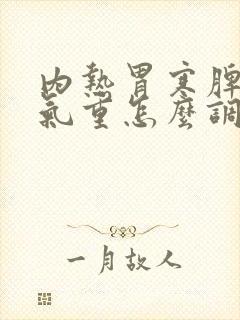 內熱胃寒脾
氣重怎麼調
一月故人